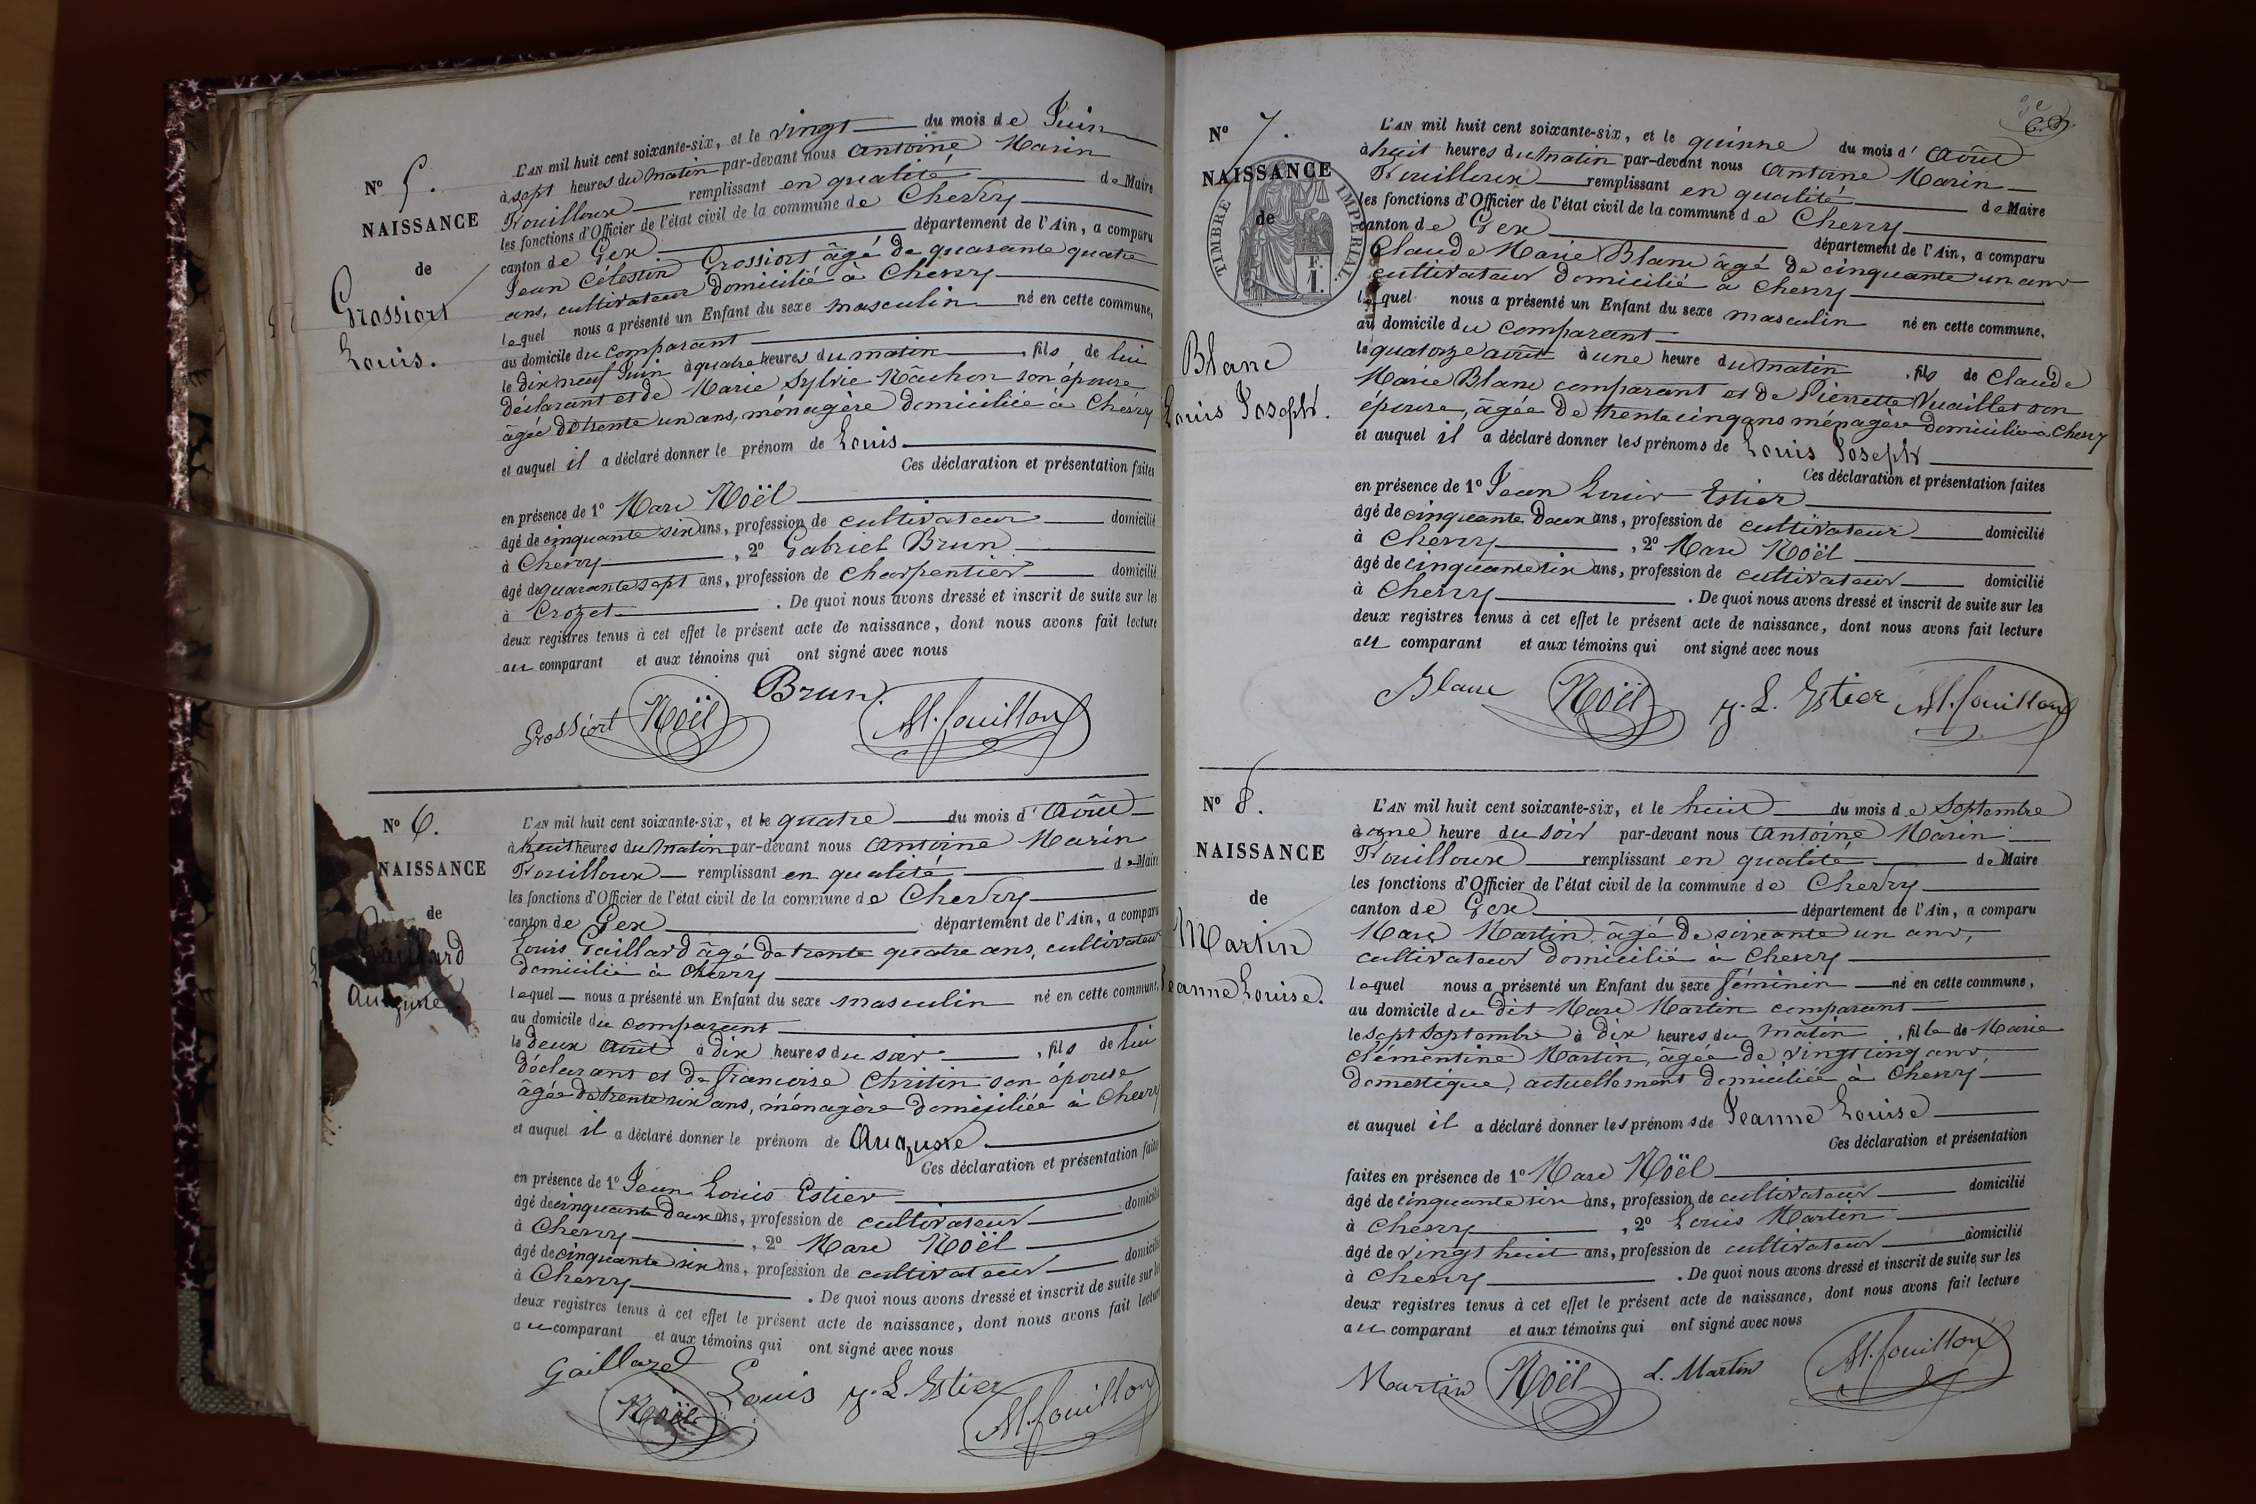 N° 5.
NAISSANCE
de
Grossiort
Louis.
L'AN mil huit cent soixante-six, et le vingt du mois de Juin
à sept heures du matin par-devant nous Antoine Marin
Fouilloux remplissant en qualité de Maire
les fonctions d'Officier de l'état civil de la commune de Chevry
canton de Gex département de l'Ain, a comparu
Jean Célestin Grossiort âgé de quarante quatre
ans, cultivateur domicilié à Chevry
lequel nous a présenté un Enfant du sexe masculin né en cette commune,
au domicile du comparant
le dix neuf Juin à quatre heures du matin , fils de lui
déclarant et de Marie Sylvie Mâchon son épouse
âgée de trente un ans, ménagère domiciliée à Chevry
et auquel il a déclaré donner le prénom de Louis
Ces déclaration et présentation faites
en présence de 1° Marc Noël
âgé de cinquante six ans, profession de cultivateur domicilié
à Chevry , 2° Gabriel Brun
âgé de quarante sept ans, profession de charpentier domicilié
à Crozet . De quoi nous avons dressé et inscrit de suite sur les
deux registres tenus à cet effet le présent acte de naissance, dont nous avons fait lecture
au comparant et aux témoins qui ont signé avec nous
Grossiort Noël Brun. M. fouilloux
N° 6.
NAISSANCE
de
Gaillard
Auguste.
L'AN mil huit cent soixante-six, et le quatre du mois d'Août
à huit heures du matin par-devant nous Antoine Marin
Fouilloux remplissant en qualité de Maire
les fonctions d'Officier de l'état civil de la commune de Chevry
canton de Gex département de l'Ain, a comparu
Louis Gaillard âgé de trente quatre ans, cultivateur
domicilié à Chevry
lequel nous a présenté un Enfant du sexe masculin né en cette commune,
au domicile du comparant
le deux Août à dix heures du soir , fils de lui
déclarant et de francoise Chritin son épouse
âgée de trente six ans, ménagère domiciliée à Chevry
et auquel il a déclaré donner le prénom de Auguste
Ces déclaration et présentation faites
en présence de 1° Jean Louis Estier
âgé de cinquante deux ans, profession de cultivateur domicilié
à Chevry , 2° Marc Noël
âgé de cinquante six ans, profession de cultivateur domicilié
à Chevry . De quoi nous avons dressé et inscrit de suite sur les
deux registres tenus à cet effet le présent acte de naissance, dont nous avons fait lecture
au comparant et aux témoins qui ont signé avec nous
Gaillard Louis J. L. Estier M. fouilloux
Noël
N° 7.
NAISSANCE
de
TIMBRE IMPERIAL
F.
1.
Blanc
Louis Joseph.
L'AN mil huit cent soixante-six, et le quinze du mois d'Août
à huit heures du matin par-devant nous Antoine Marin
Fouilloux remplissant en qualité de Maire
les fonctions d'Officier de l'état civil de la commune de Chevry
canton de Gex département de l'Ain, a comparu
Claude Marie Blanc âgé de cinquante un ans
cultivateur domicilié à Chevry
lequel nous a présenté un Enfant du sexe masculin né en cette commune,
au domicile du comparant
le quatorze août à une heure du matin , fils de Claude
Marie Blanc comparant et de Pierrette Vuaillet son
épouse, âgée de trente cinq ans ménagère domiciliée à Chevry
et auquel il a déclaré donner les prénoms de Louis Joseph
Ces déclaration et présentation faites
en présence de 1° Jean Louis Estier
âgé de cinquante deux ans, profession de cultivateur domicilié
à Chevry , 2° Marc Noël
âgé de cinquante six ans, profession de cultivateur domicilié
à Chevry . De quoi nous avons dressé et inscrit de suite sur les
deux registres tenus à cet effet le présent acte de naissance, dont nous avons fait lecture
au comparant et aux témoins qui ont signé avec nous
Blanc Noël J. L. Estier M. fouilloux
N° 8.
NAISSANCE
de
Martin
Jeanne Louise.
L'AN mil huit cent soixante-six, et le huit du mois de Septembre
à une heure du soir par-devant nous Antoine Marin
Fouilloux remplissant en qualité de Maire
les fonctions d'Officier de l'état civil de la commune de Chevry
canton de Gex département de l'Ain, a comparu
Marc Martin âgé de soixante un ans,
cultivateur domicilié à Chevry
lequel nous a présenté un Enfant du sexe féminin né en cette commune,
au domicile du dit Marc Martin comparant
le sept Septembre à dix heures du matin , fille de Marie
Clémentine Martin, âgée de vingt cinq ans,
domestique, actuellement domiciliée à Chevry
et auquel il a déclaré donner les prénoms de Jeanne Louise
Ces déclaration et présentation
faites en présence de 1° Marc Noël
âgé de cinquante six ans, profession de cultivateur domicilié
à Chevry , 2° Louis Martin
âgé de vingt huit ans, profession de cultivateur domicilié
à Chevry . De quoi nous avons dressé et inscrit de suite sur les
deux registres tenus à cet effet le présent acte de naissance, dont nous avons fait lecture
au comparant et aux témoins qui ont signé avec nous
Martin Noël L. Martin M. fouilloux